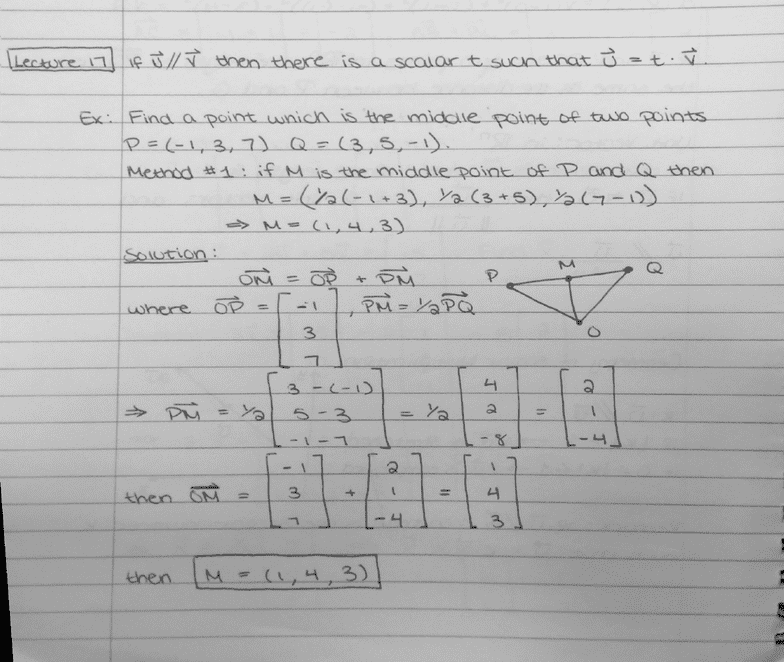 Lecture 17 If u⃗ // v⃗ then there is a scalar t such that u⃗ = t · v⃗.
Ex: Find a point which is the middle point of two points
P = (-1, 3, 7) Q = (3, 5, -1).
Method #1: if M is the middle point of P and Q then
M = (1/2(-1+3), 1/2(3+5), 1/2(7-1))
⇒ M = (1, 4, 3)
Solution:
OM⃗ = OP⃗ + PM⃗
where OP⃗ = [-1 3 7], PM⃗ = 1/2 PQ⃗
P M Q
O
⇒ PM⃗ = 1/2 [3-(-1) 5-3 -1-7] = 1/2 [4 2 -8] = [2 1 -4]
then OM⃗ = [-1 3 7] + [2 1 -4] = [1 4 3]
then M = (1, 4, 3)